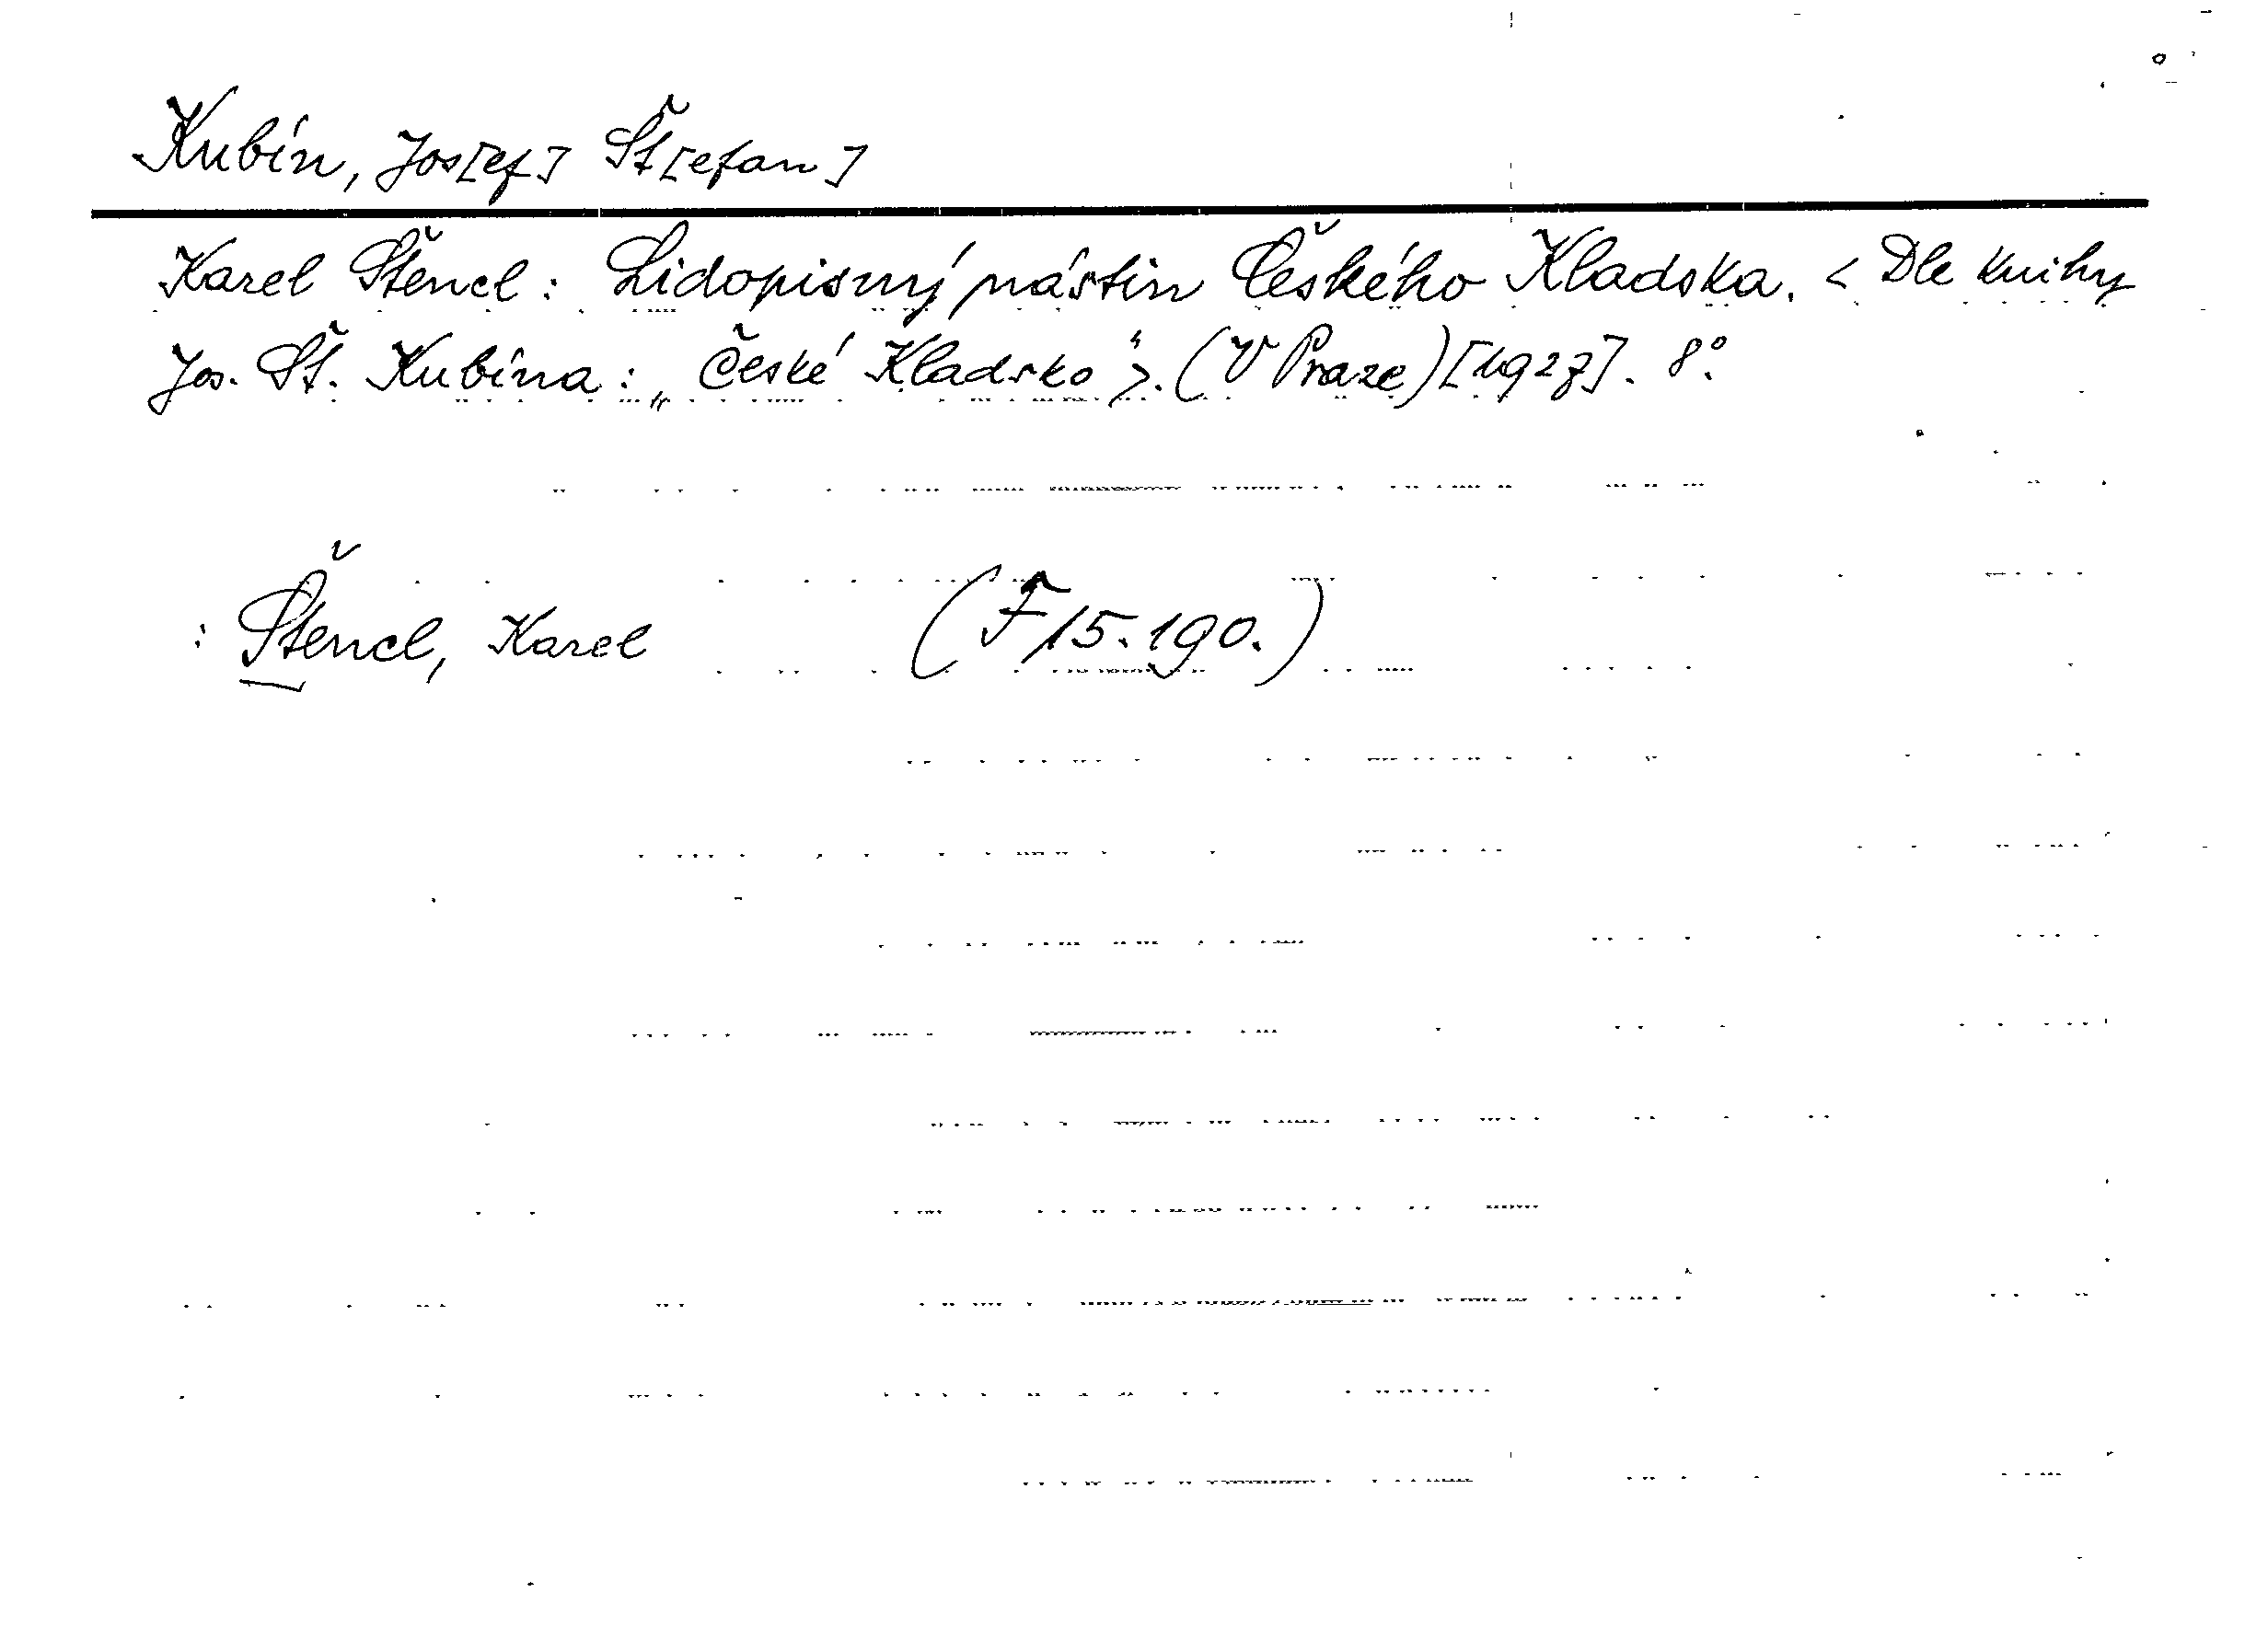 Kubín, Jos[ef] Št[efan]
Karel Štencl: Lidopisný nástin Českého Kladska. < Dle knihy
Jos. Št. Kubína: „České Kladsko“>. (V Praze) [1927]. 8°.
: Štencl, Karel (F 15.190.)